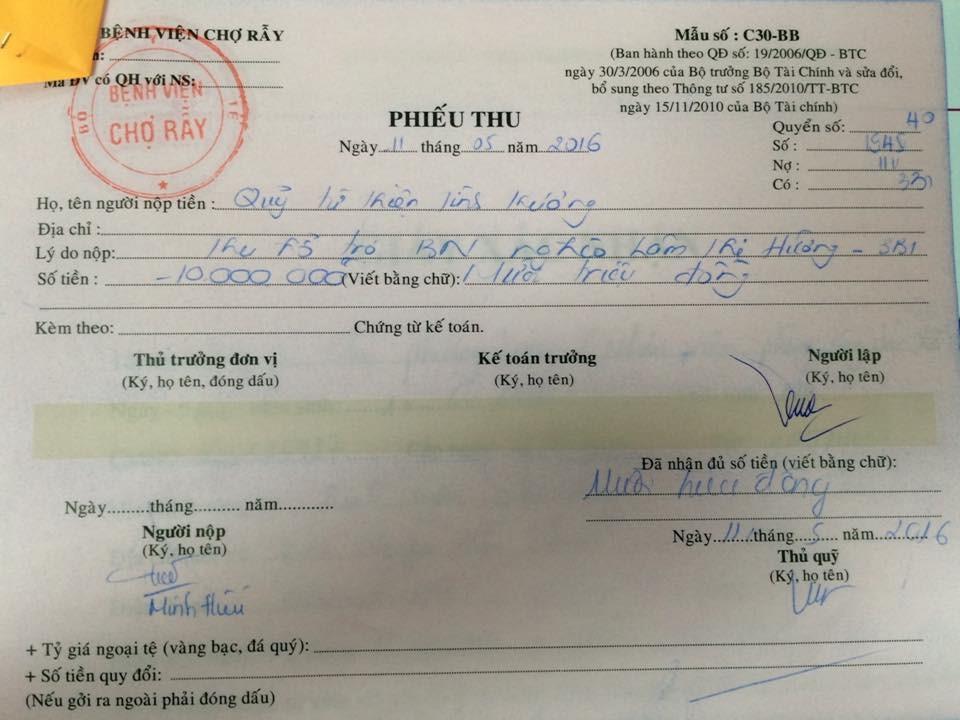 BỆNH VIỆN CHỢ RẪY
Mã ĐV có QH với NS:
BỆNH VIỆN
CHỢ RẪY
BỘ Y TẾ
Mẫu số : C30-BB
(Ban hành theo QĐ số: 19/2006/QĐ - BTC
ngày 30/3/2006 của Bộ trưởng Bộ Tài Chính và sửa đổi,
bổ sung theo Thông tư số 185/2010/TT-BTC
ngày 15/11/2010 của Bộ Tài chính)
PHIẾU THU
Ngày 11 tháng 05 năm 2016
Quyển số: 40
Số : 1545
Nợ : 111
Có : 331
Họ, tên người nộp tiền : Quỹ từ thiện
Địa chỉ :
Lý do nộp: Thu hỗ trợ BN nghèo Lâm Thị Hường - 3B1
Số tiền : -10.000 000 (Viết bằng chữ): Mười triệu đồng
Kèm theo: Chứng từ kế toán.
Thủ trưởng đơn vị
(Ký, họ tên, đóng dấu)
Kế toán trưởng
(Ký, họ tên)
Người lập
(Ký, họ tên)
Đã nhận đủ số tiền (viết bằng chữ):
Mười triệu đồng
Ngày.........tháng......... năm............
Người nộp
(Ký, họ tên)
Minh Hiếu
Ngày 11 tháng 5 năm 2016
Thủ quỹ
(Ký, họ tên)
+ Tỷ giá ngoại tệ (vàng bạc, đá quý):
+ Số tiền quy đổi:
(Nếu gởi ra ngoài phải đóng dấu)